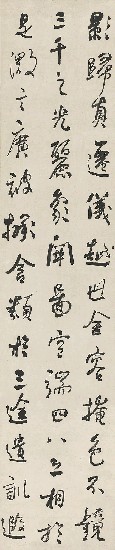 影歸真遷儀越世金容掩色不鏡
三千之光麗象開圖空端四八之相於
是微言廣被拯含類於三途遺訓遐